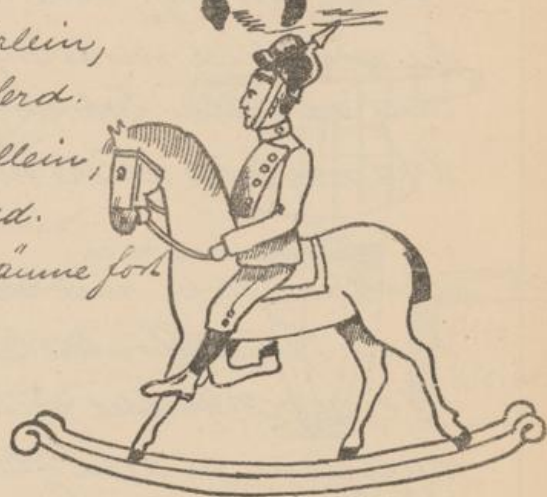 lein,
erd.
llein,
d.
äume fort